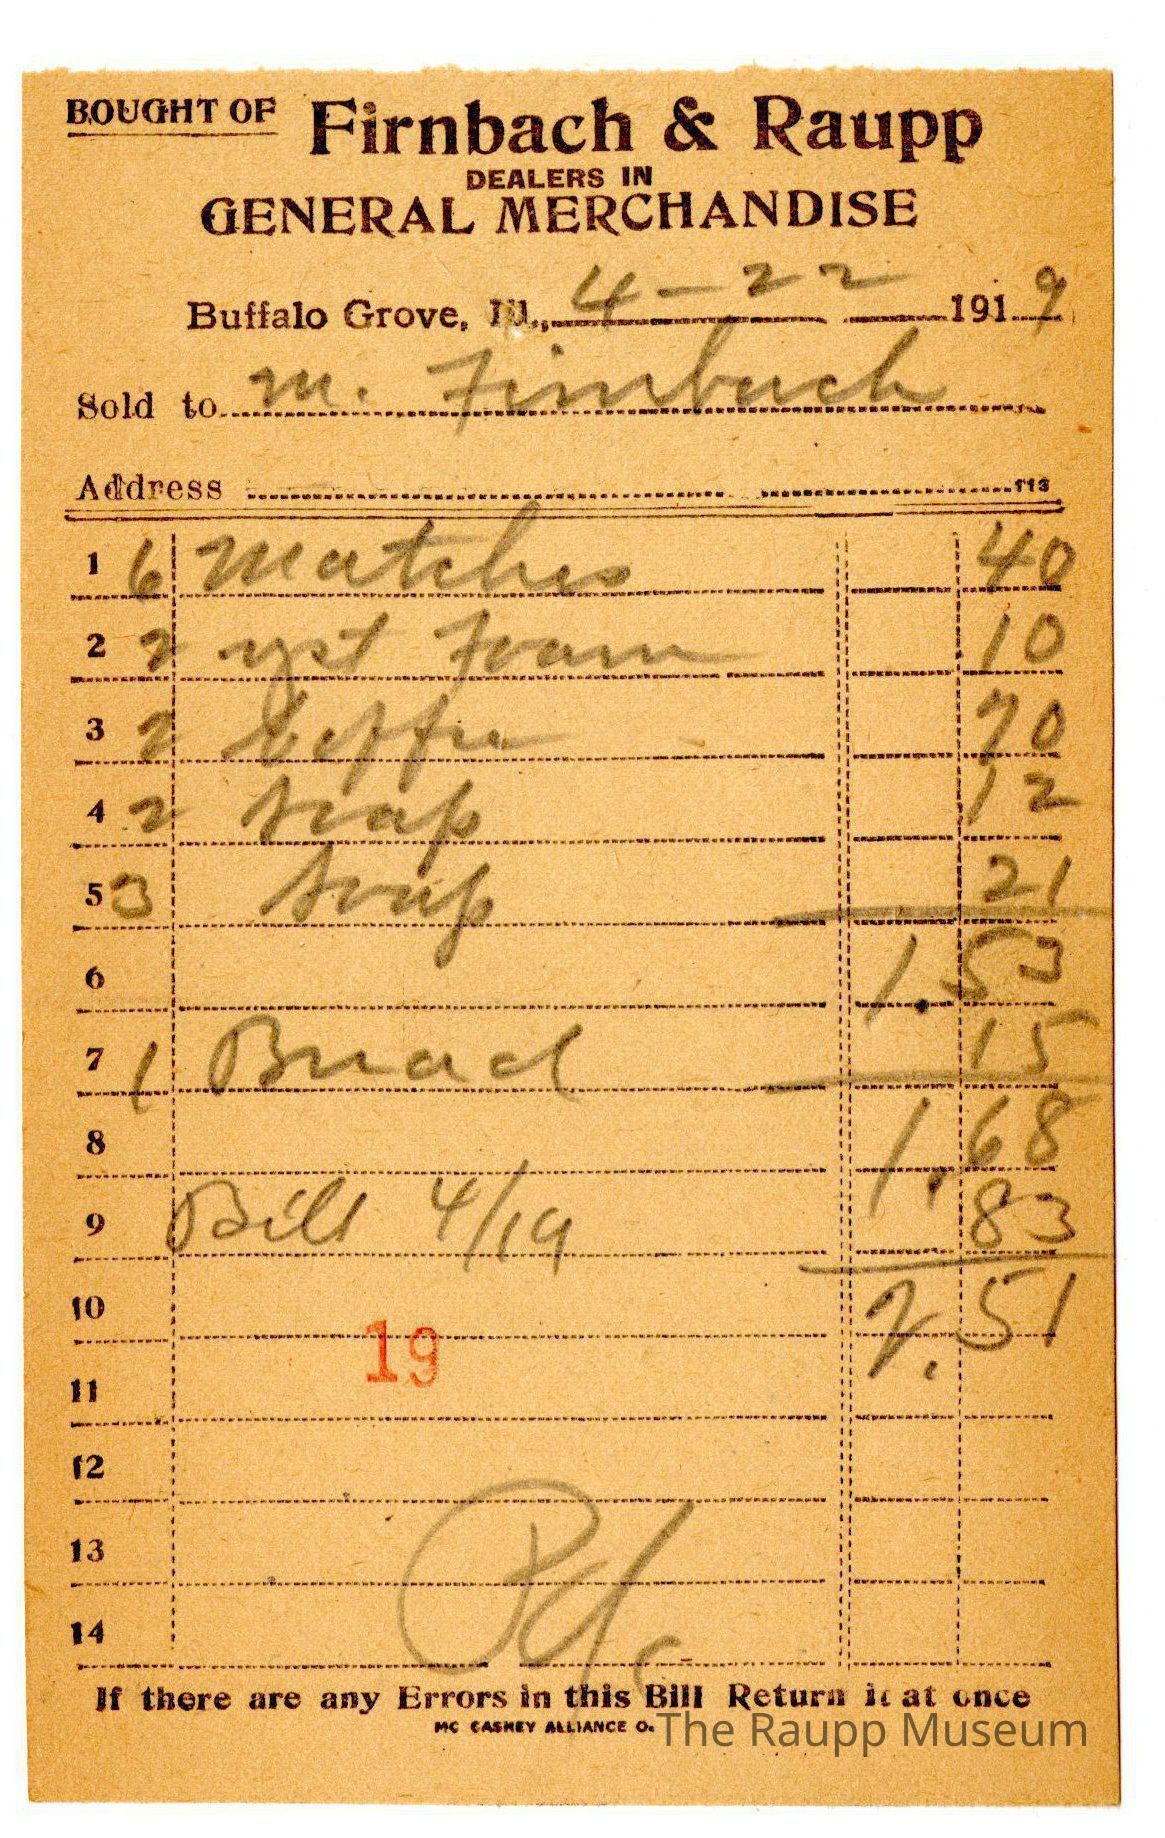 BOUGHT OF Firnbach & Raupp
DEALERS IN
GENERAL MERCHANDISE
Buffalo Grove, Ill., 4-22 1919
Sold to M. Firnbach
Address 113
1 6 Matches 40
2 2 yst Foam 10
3 2 Coffee 70
4 2 Soap 12
5 3 Soap 21
6 1.53
7 1 Bread 15
8 1.68
9 Bill 4/19 83
10 2.51
19
11
12
13
14
If there are any Errors in this Bill Return it at once
MC CASKEY ALLIANCE O.
The Raupp Museum